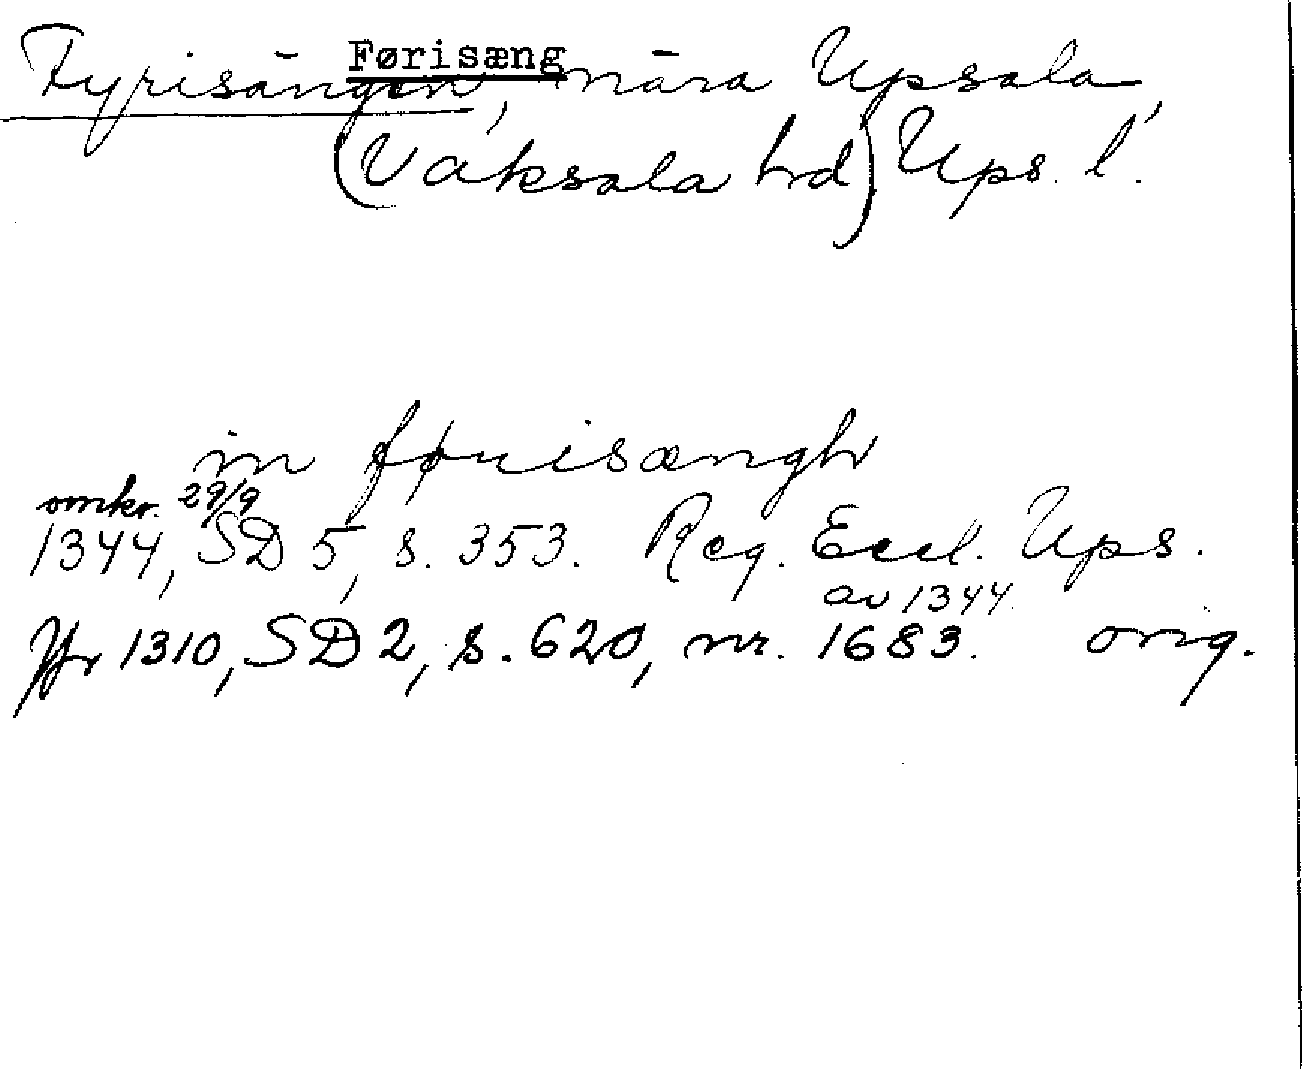 Førisæng
Fyrisängen, nära Upsala
(Vaksala hd) Ups. l.
in førisængh
omkr. 29/9
1344, SD 5, s. 353. Reg. Eccl. Ups.
av 1344.
Jfr 1310, SD 2, s. 620, nr. 1683. orig.